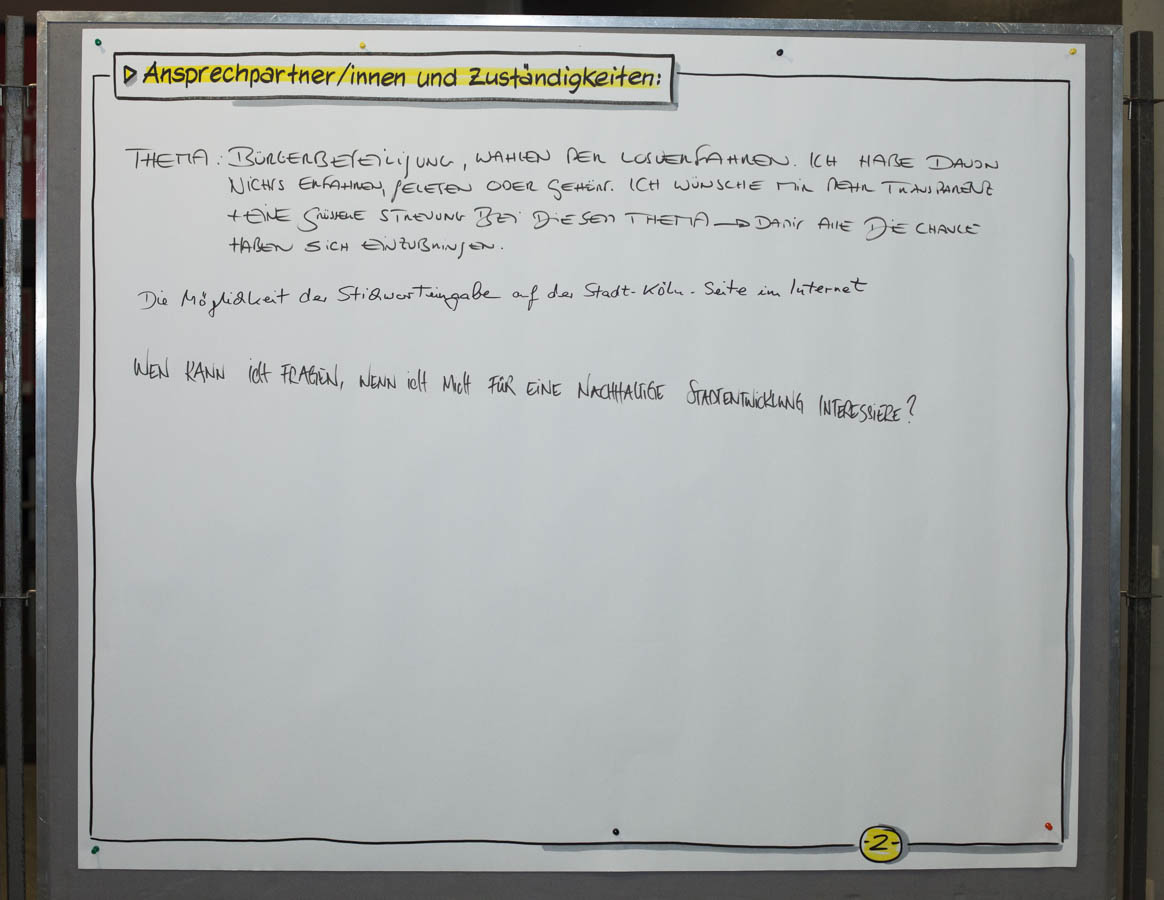 Ansprechpartner/innen und Zuständigkeiten:
THEMA: BÜRGERBETEILIGUNG, WAHLEN PER LOSVERFAHREN. ICH HABE DAVON
NICHTS ERFAHREN, GELESEN ODER GEHÖRT. ICH WÜNSCHE MIR MEHR TRANSPARENZ
+ EINE GRÖSSERE STREUUNG BEI DIESEM THEMA → DAMIT ALLE DIE CHANCE
HABEN SICH EINZUBRINGEN.
Die Möglichkeit der Stichworteingabe auf der Stadt-Köln-Seite im Internet
WEN KANN ICH FRAGEN, WENN ICH MICH FÜR EINE NACHHALTIGE STADTENTWICKLUNG INTERESSIERE?
-2-